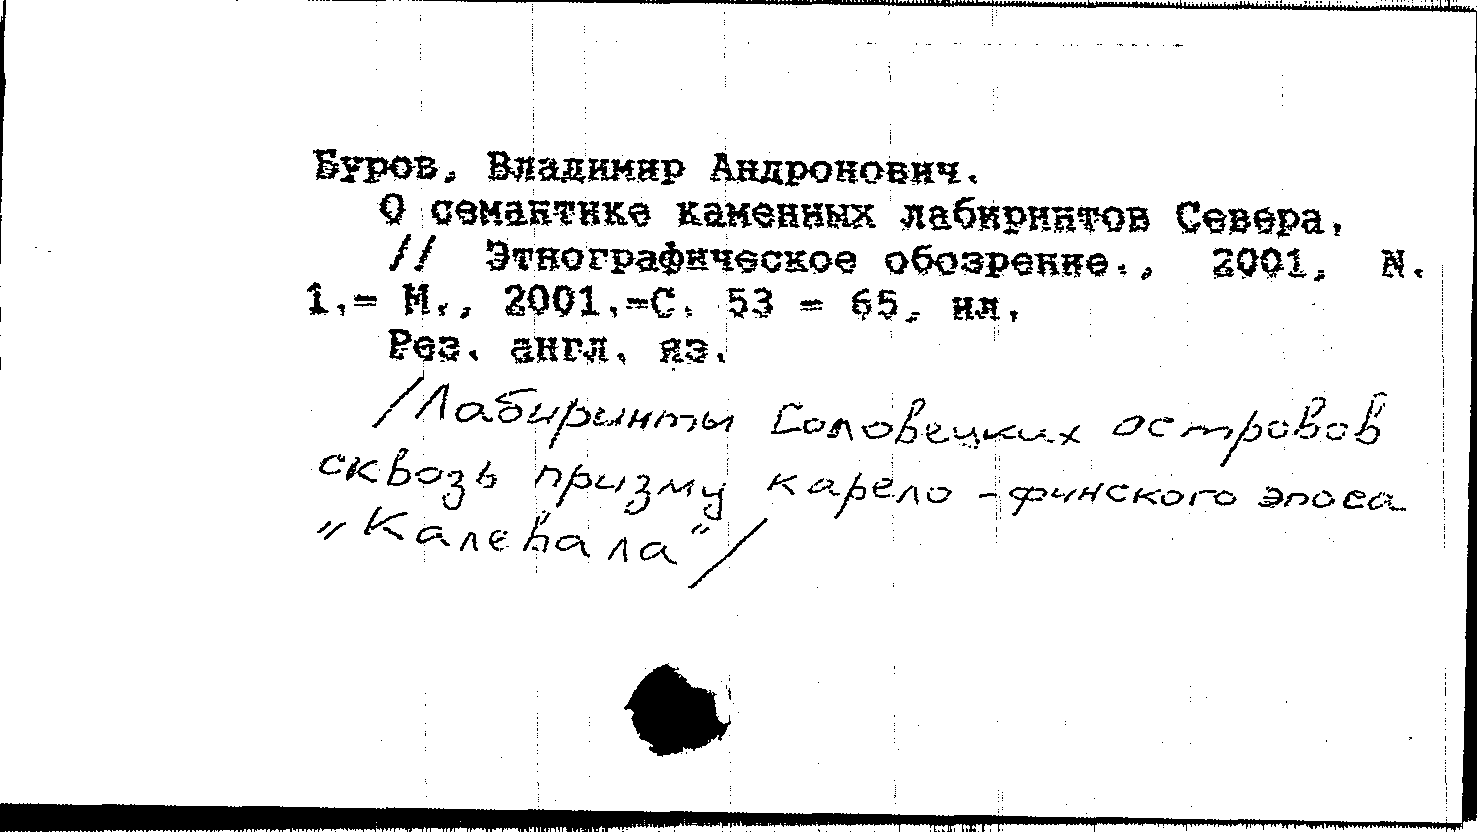 Буров, Владимир Андронович.
О семантике каменных лабиринтов Севера.
// Этнографическое обозрение., 2001, N.
1.- М., 2001.-С. 53 - 65, ил.
Рез. англ. яз.
/Лабиринты Соловецких островов
сквозь призму карело-финского эпоса
"Калевала"/